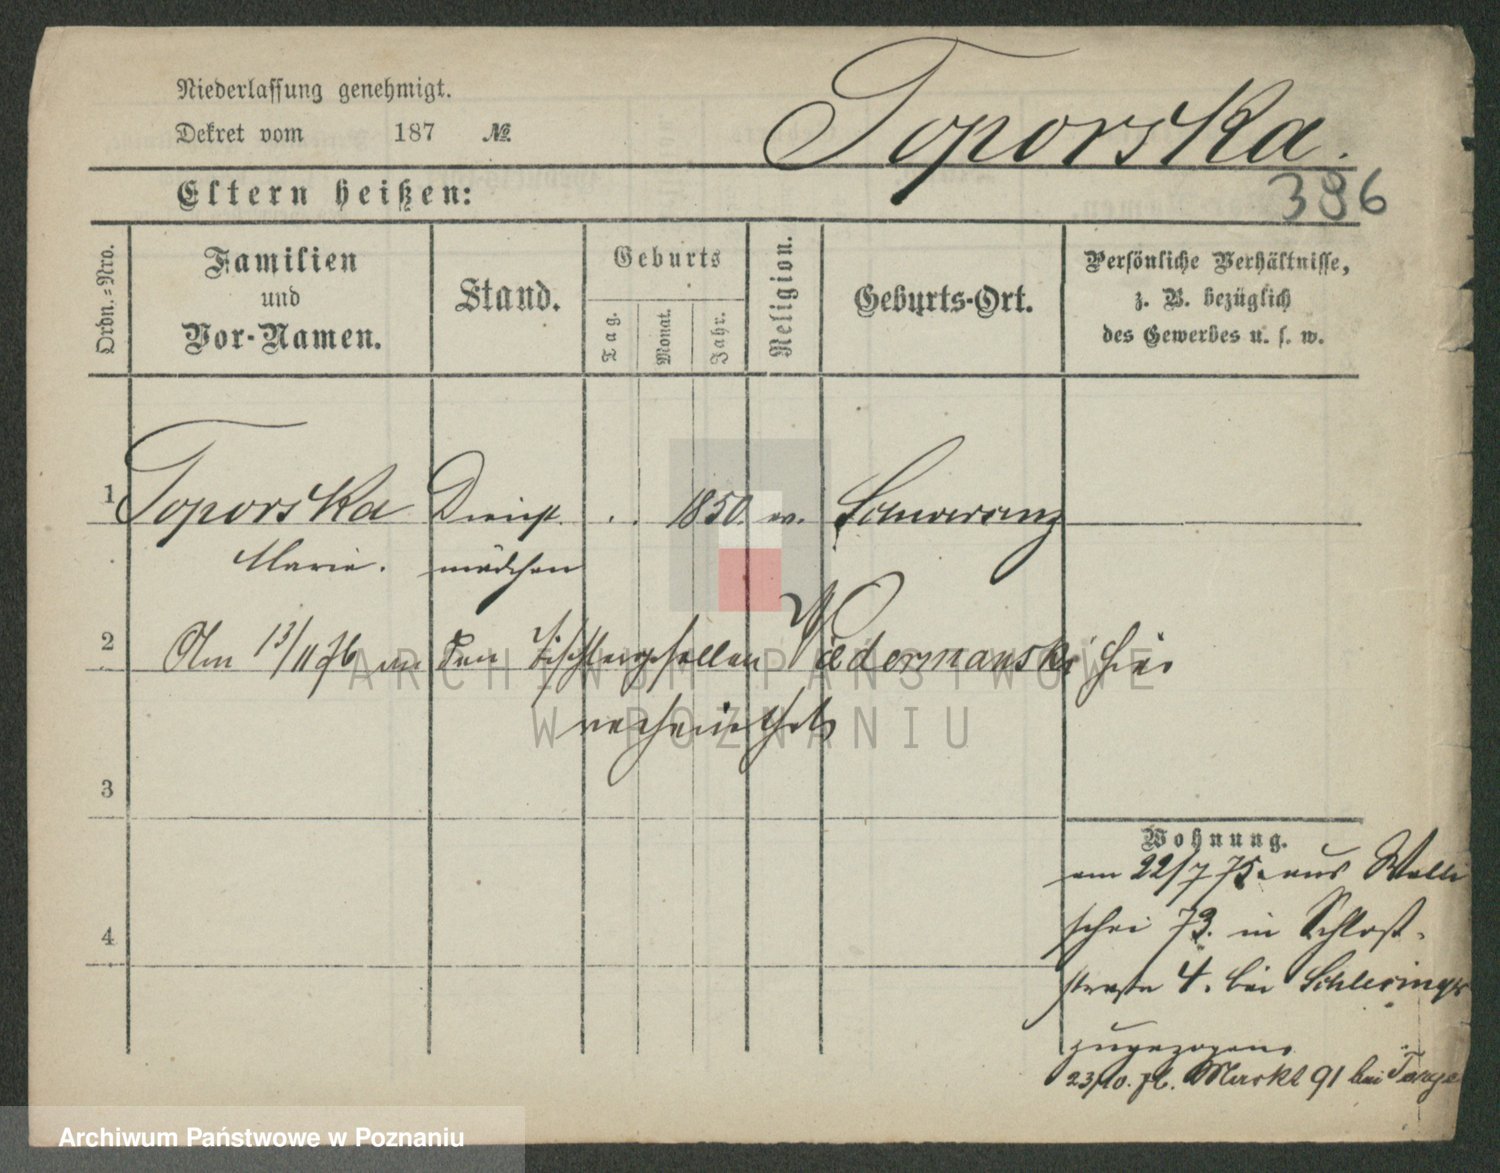 Niederlassung genehmigt.
Dekret vom 187 №.
Toporska.
Eltern heißen:
386
Ordn.-Nro.
Familien
und
Vor-Namen.
Stand.
Geburts
Tag.
Monat.
Jahr.
Religion.
Geburts-Ort.
Persönliche Verhältnisse,
z. B. bezüglich
des Gewerbes u. s. w.
1 Toporska Dienst . . 1850. Schwersenz
Marie. mädchen
2 Am 13/11 76 an den Tischlergesellen hier
verheirathet
3
4
Wohnung.
am 22/7 75. aus Walli
schei 73. in Schloß-
straße 4. bei Schlesinger
zugezogen
23/10. 76. Markt 91 bei
ARCHIWUM PAŃSTWOWE
W POZNANIU
Archiwum Państwowe w Poznaniu